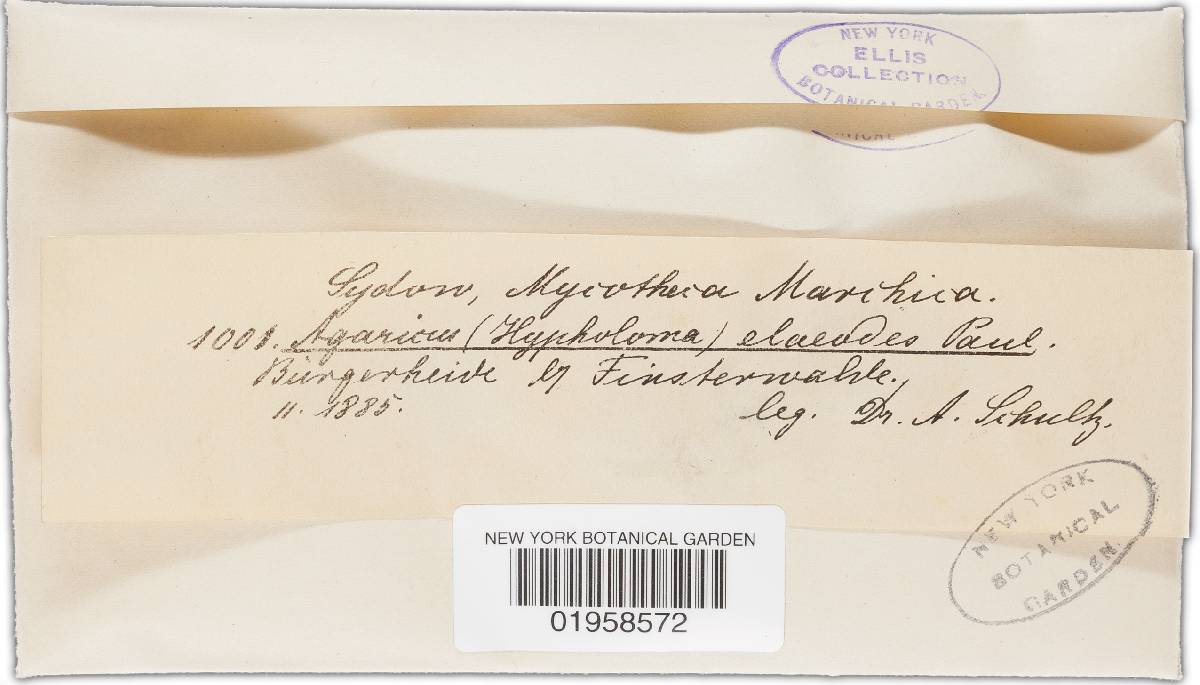 NEW YORK
ELLIS
COLLECTION
BOTANICAL GARDEN
Sydow, Mycotheca Marchica.
1001. Agaricus (Hypholoma) elaeodes Paul.
Bürgerheide b/ Finsterwalde.
11. 1885.
leg. Dr. A. Schultz.
NEW YORK
BOTANICAL
GARDEN.
NEW YORK BOTANICAL GARDEN
01958572